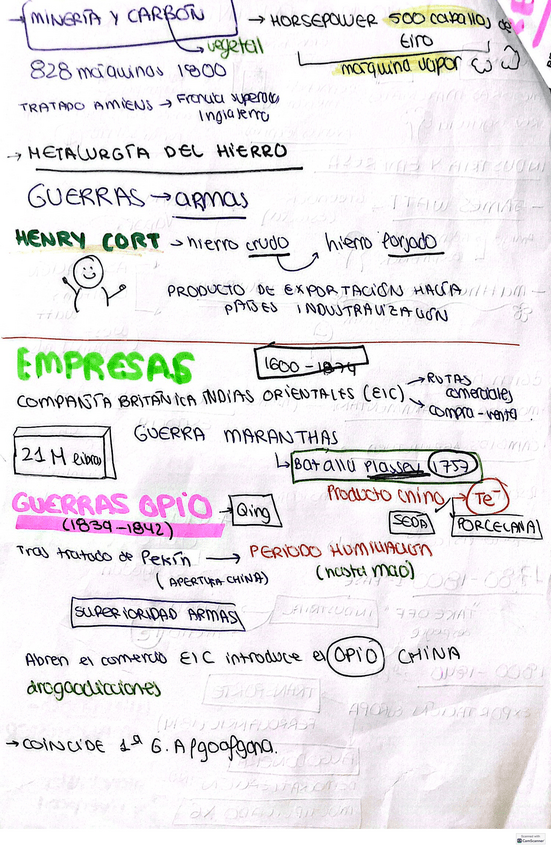 → MINERÍA Y CARBÓN → HORSEPOWER 500 caballos de tiro
vegetal
máquina vapor
828 máquinas 1800
TRATADO AMIENS → Francia superada
Inglaterra
→ METALURGÍA DEL HIERRO
GUERRAS → armas
HENRY CORT → hierro crudo hierro forjado
PRODUCTO DE EXPORTACIÓN HACIA
PAÍSES INDUSTRALIZACIÓN
EMPRESAS
1600 - 1874
COMPANÍA BRITÁNICA INDIAS ORIENTALES (EIC) → RUTAS comerciales
→ compra-venta
GUERRA MARANTHAS
21 M libras
Batalla Plassey 1757
GUERRAS OPIO → Qing
(1839-1842)
Producto chino → Té
SEDA
PORCELANA
Tras tratado de Pekín → PERIODO HUMILIACIÓN
(APERTURA CHINA)
(hasta mao)
SUPERIORIDAD ARMAS
Abren el comercio EIC introduce el OPIO CHINA
drogoadicciones
→ COINCIDE 1ª G.
Scanned with
CamScanner